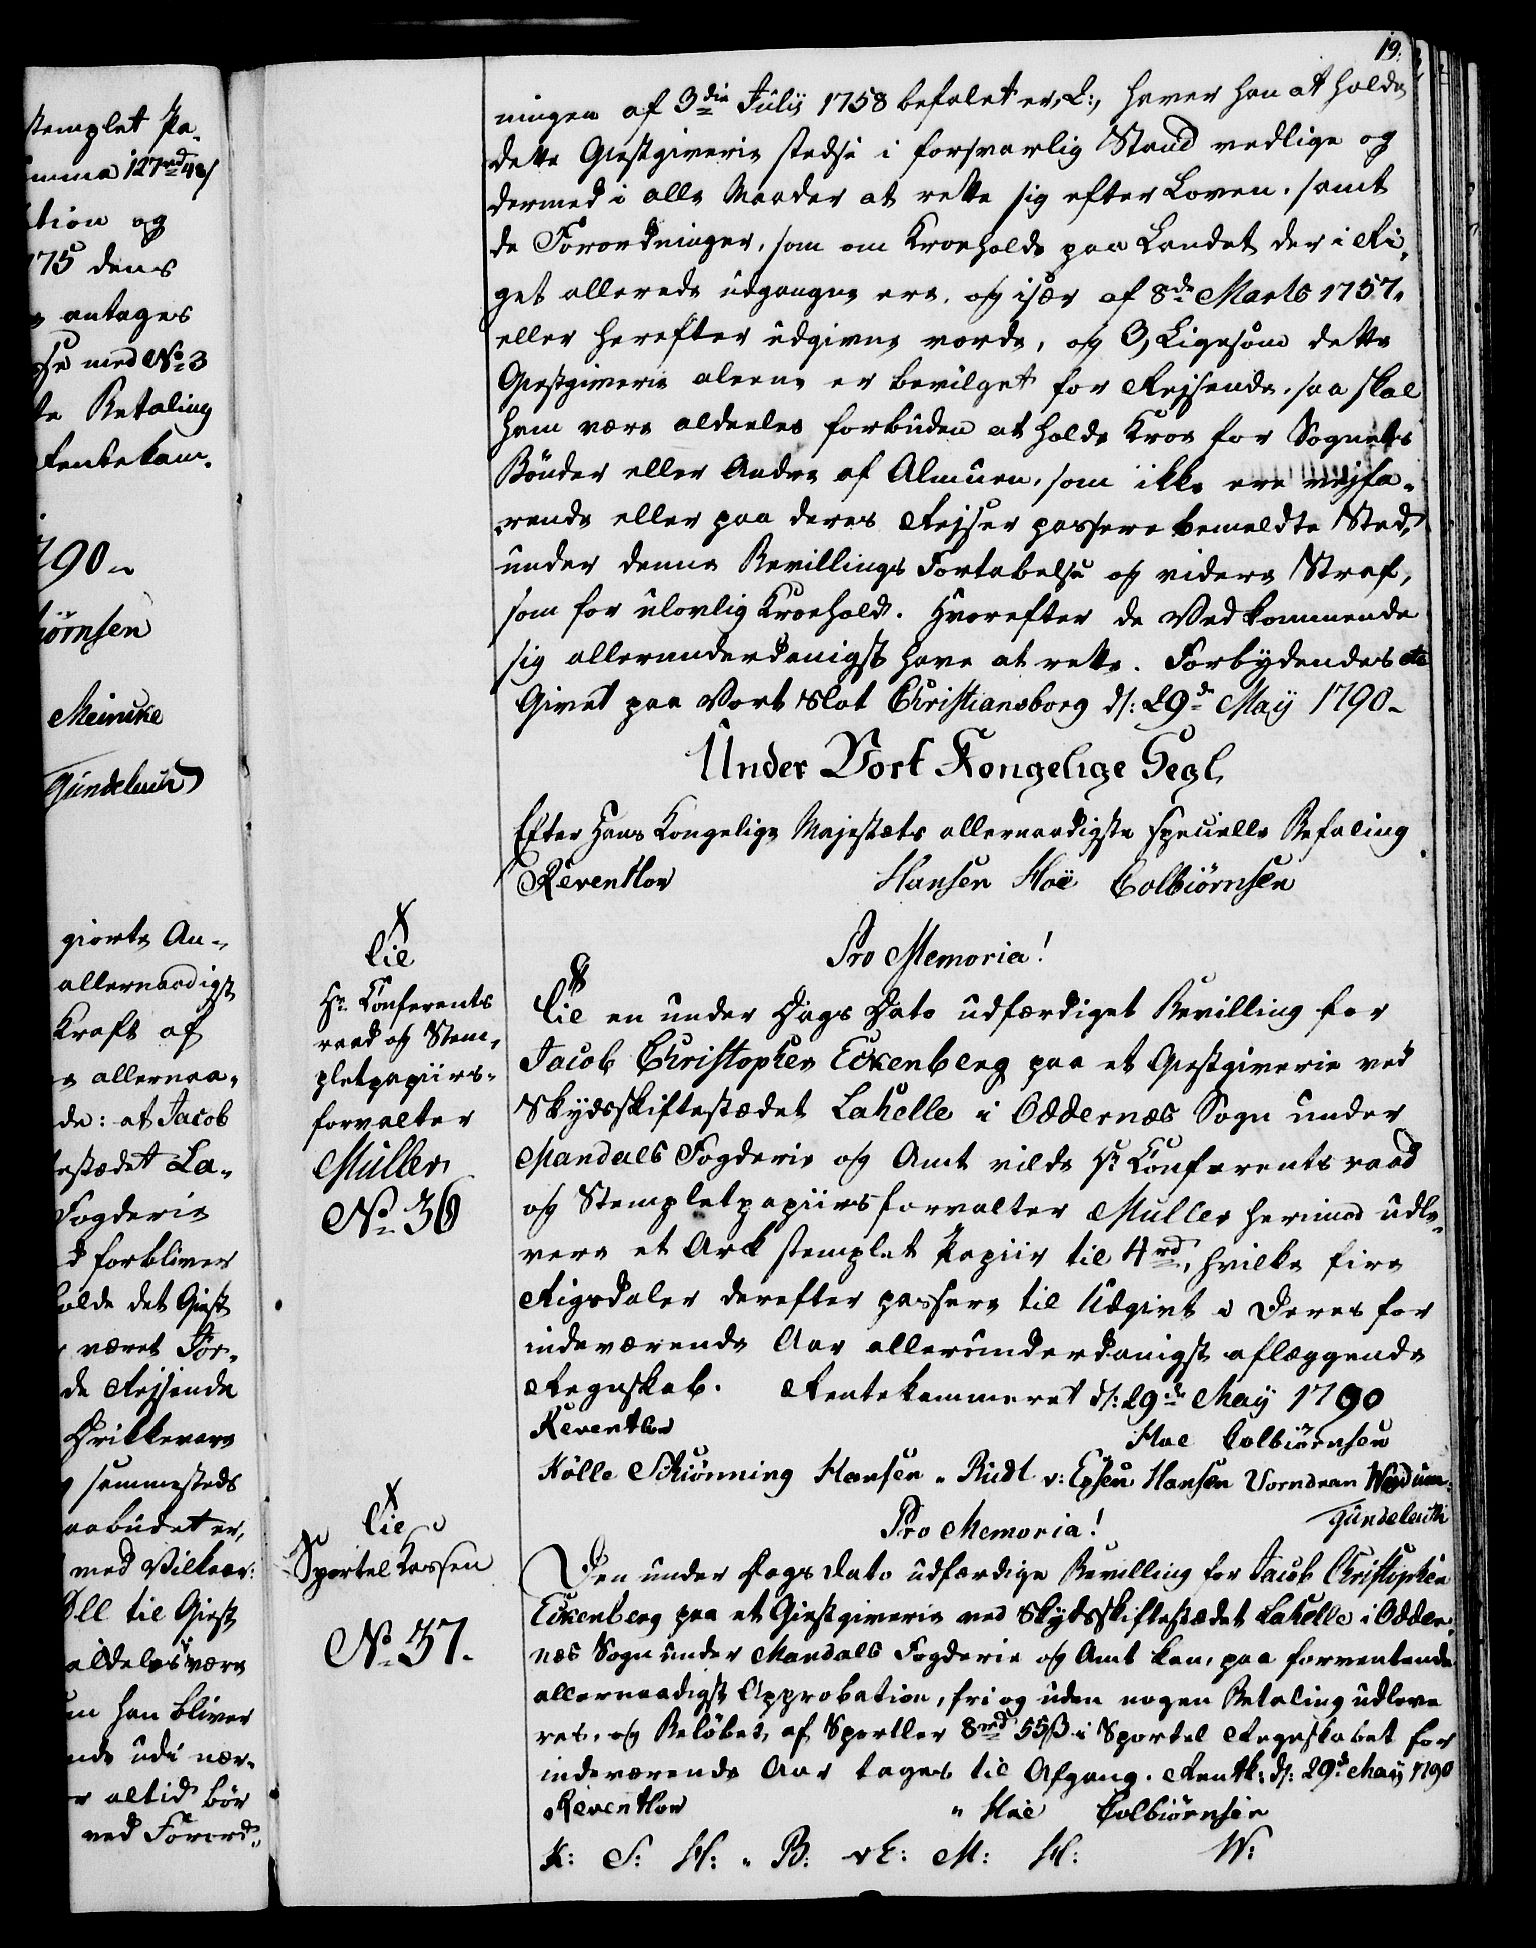 templet Pa-
umma 127rd 48/
tion og
775 dens
antages
se med No 3
te Betaling
Rentekam.
790
iörnsen
Meincke
Gündelach
giorte An-
allernaadigst
Kraft af
allernaa-
de: at Jacob
estædet La-
Fogderie
d forbliver
holde det Giest
været For-
de Rejsende
Drikkevare
sammesteds
aabudet er,
med Vilkaar:
Öll til Giest
aldeles være
han bliver
ende udi nær-
altid bör
ved Forord-
19.
ningen af 3die Julij 1758 befalet er, 2:, haver han at holde
dette Giestgiverie stedse i forsvarlig Stand vedlige og
dermed i alle Maader at rette sig efter Loven, samt
de Forordninger, som om Kroehold paa Landet der i Ri-
get allerede udgangne ere, og især af 8de Marts 1757,
eller herefter udgivne vorde, og 3, Ligesom dette
Giestgiverie alene er bevilget for Rejsende, saa skal
ham være aldeeles forbuden at holde Kroe for Sognets
Bönder eller Andre af Almuen, som ikke ere vejfa-
rende eller paa deres Rejser passere bemeldte Sted,
under denne Bevillings Fortabelse og videre Straf,
som for ulovlig Kroehold. Hvorefter de Vedkommende
sig allerunderdanigst have at rette. Forbydendes etc
Givet paa Vort Slot Christiansborg d: 29de Maij 1790
Under Vort Kongelige Segl
Efter Hans Kongelige Majestæts allernaadigste specielle Befaling
Reventlow Hansen Hoë Colbiörnsen
Til
Hr Conferents
raad og Stem-
pletpapiirs-
forvalter
Müller
No 36
Pro Memoria!
Til en under Dags Dato udfærdiget Bevilling for
Jacob Christopher Eckenberg paa et Giestgiverie ved
Skydsskiftestædet Lahelle i Oddernæs Sogn under
Mandals Fogderie og Amt vilde Hr Conferentsraad
og Stempletpapiirsforvalter Müller herimod udle-
vere et Ark stemplet Papiir til 4rd, hvilke fire
Rigsdaler derefter passere til Udgivt i Deres for
indeværende Aar allerunderdanigst aflæggende
Regnskab. Rentekammeret d: 29de Maij 1790
Reventlow Hoe Colbiörnsen
Kölle Schiönning Hansen Budtz v: Essen Hansen Vorndran Wedum
Gündelach
Til
Sportel Cassen
No 37.
Pro Memoria!
Den under Dags Dato udfærdige Bevilling for Jacob Christopher
Eckenberg paa et Giestgiverie ved Skydsskiftestædet Lahelle i Odder-
næs Sogn under Mandals Fogderie og Amt kan, paa forventende
allernaadigst Approbation, frie og uden nogen Betaling udleve
res, og Belöbet, af Sportler 8rd 55ß i Sportel Regnskabet for
indeværende Aar tages til Afgang. Rentk: d: 29de Maij 1790
Reventlow Hoe Colbiörnsen
K: S: H: B: vE: M: H: W: